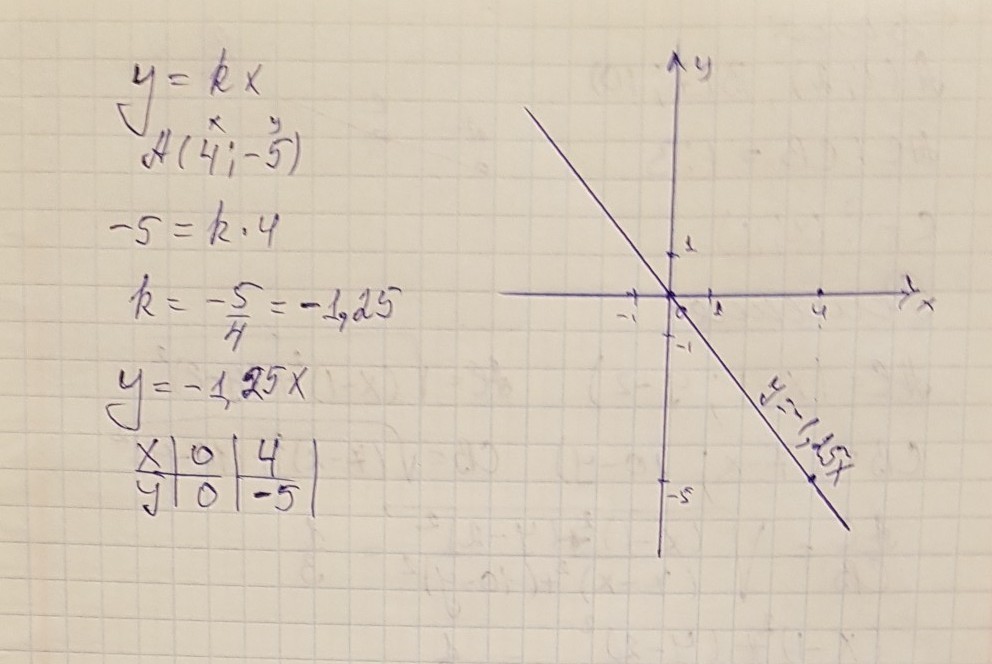 y = kx
x y
A(4; -5)
-5 = k · 4
k = -5/4 = -1,25
y = -1,25x
x | 0 | 4 |
y | 0 | -5 |
y
1
-1 0 1 4 x
-1
y=-1,25x
-5